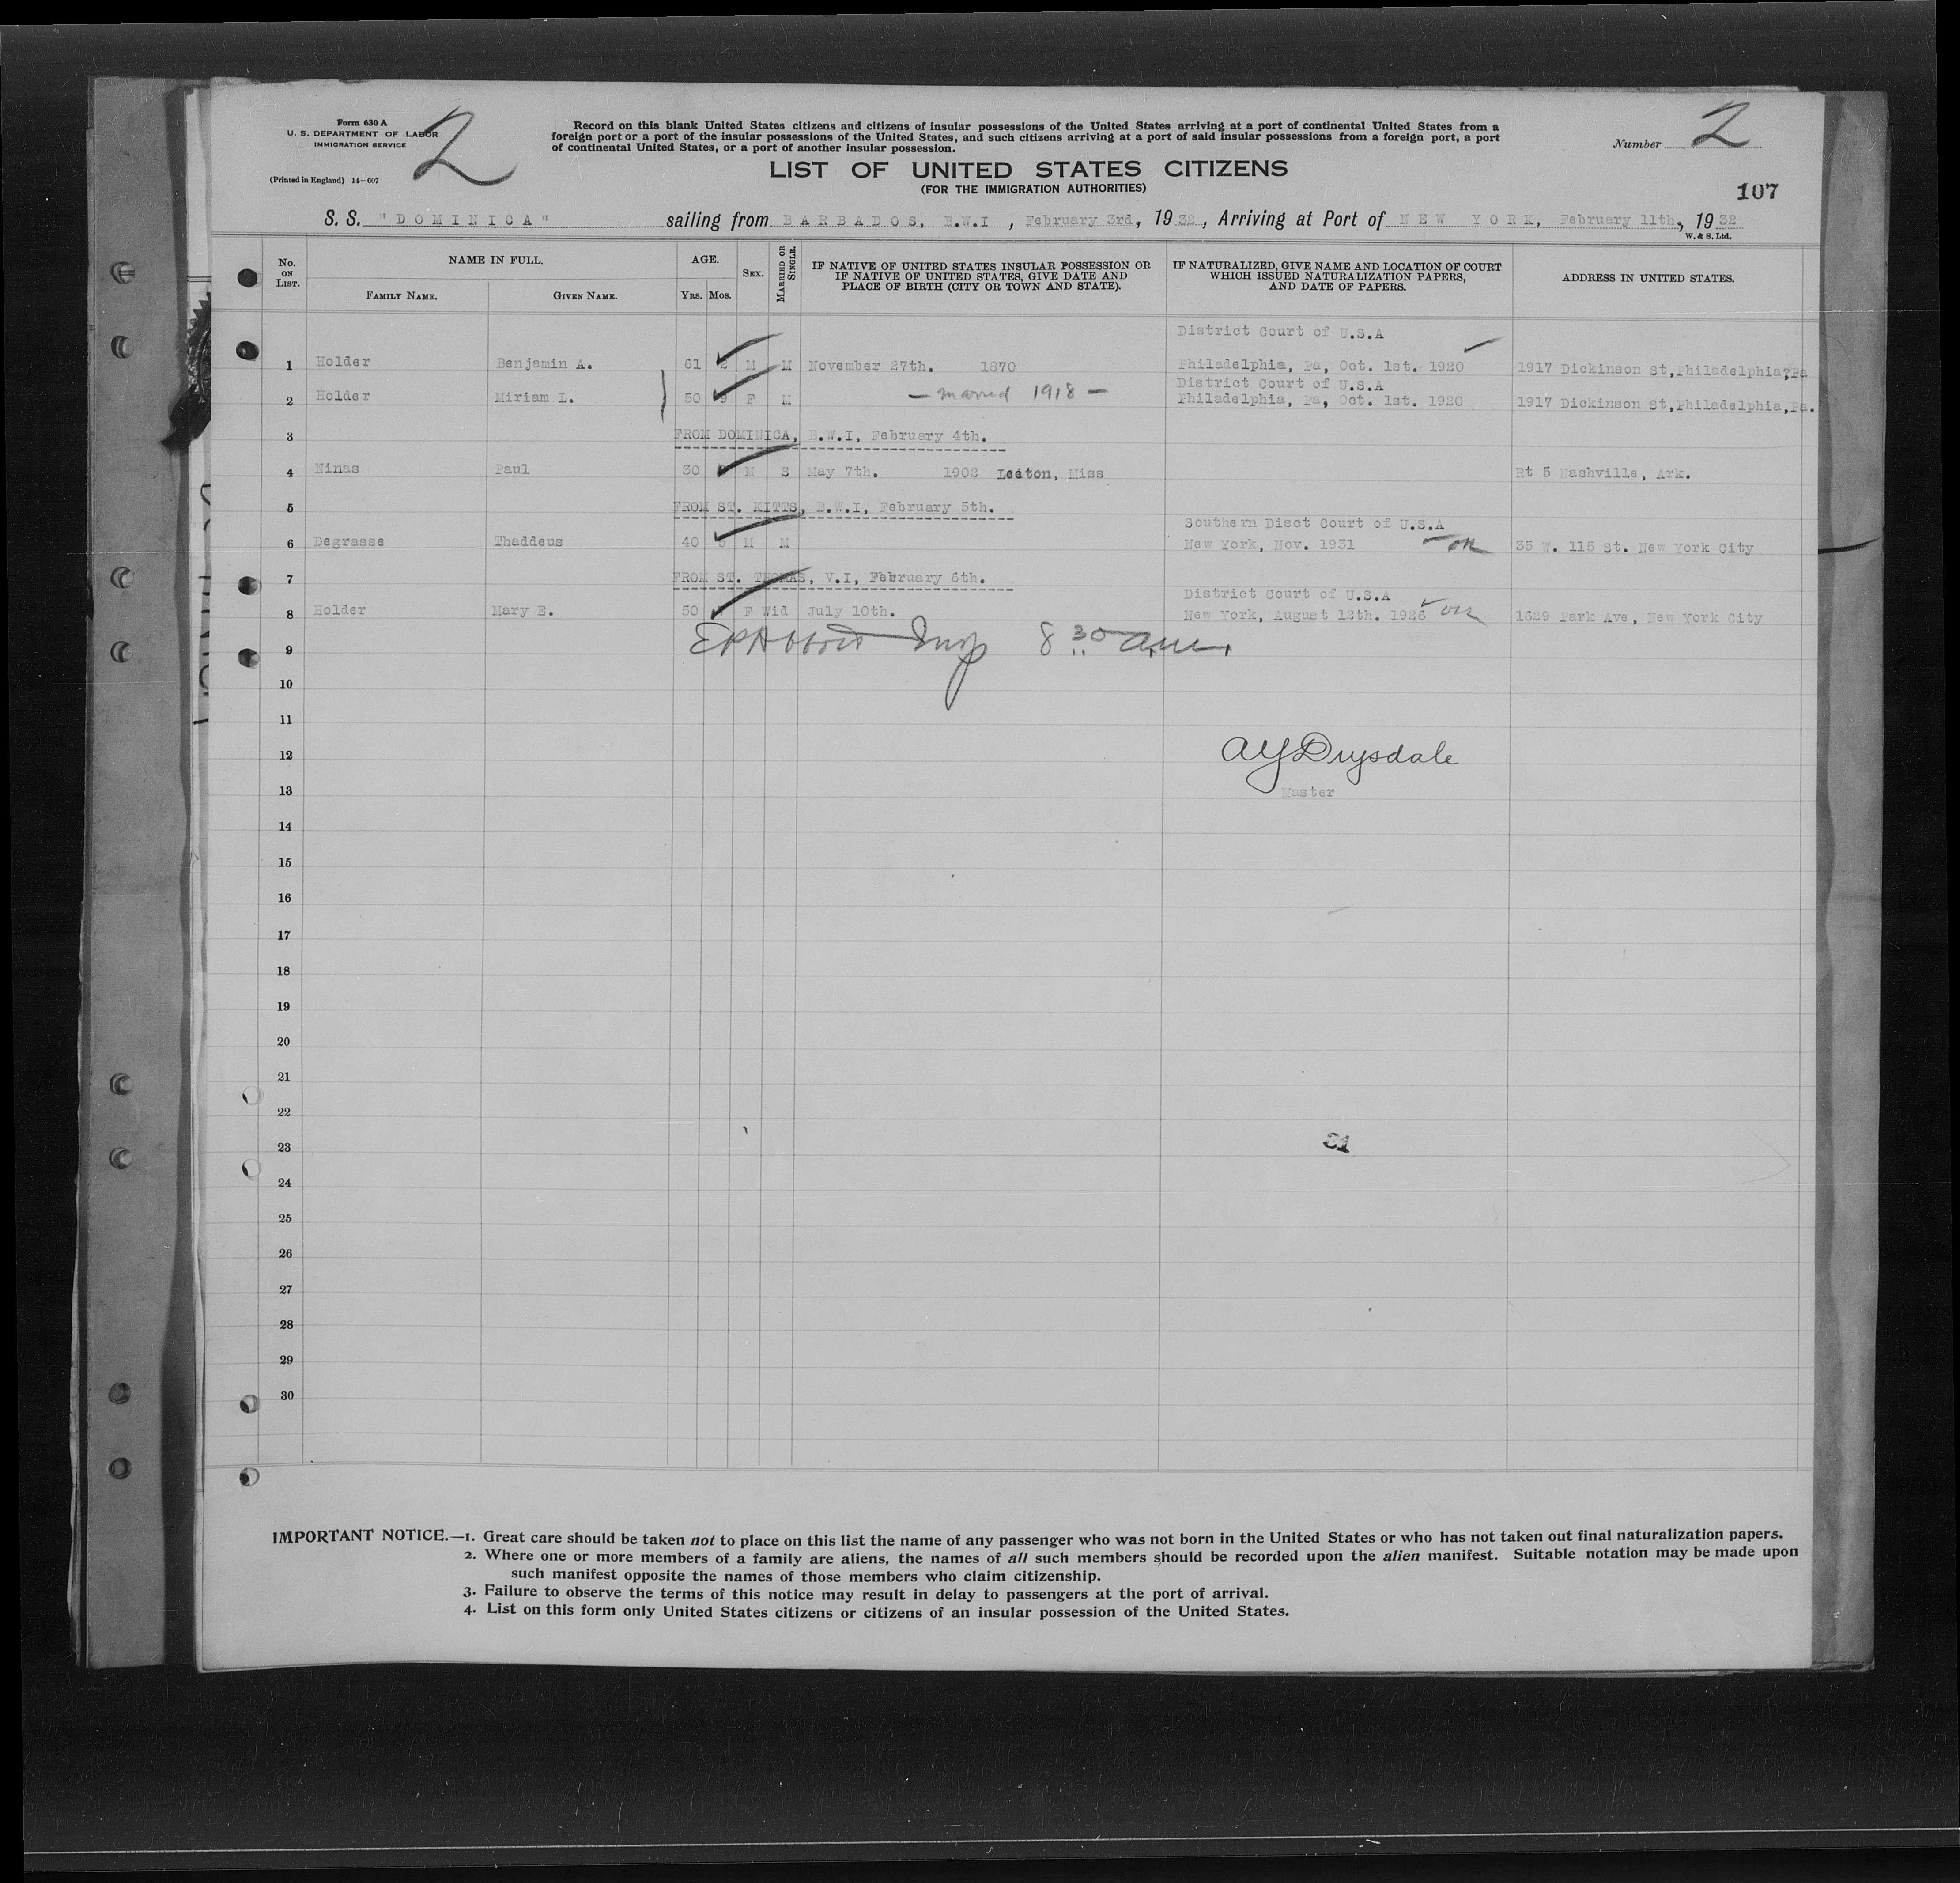 Form 630 A
U. S. DEPARTMENT OF LABOR
IMMIGRATION SERVICE
(Printed in England) 14-607
2
Record on this blank United States citizens and citizens of insular possessions of the United States arriving at a port of continental United States from a
foreign port or a port of the insular possessions of the United States, and such citizens arriving at a port of said insular possessions from a foreign port, a port
of continental United States, or a port of another insular possession.
Number 2
LIST OF UNITED STATES CITIZENS
(FOR THE IMMIGRATION AUTHORITIES)
107
S. S. "DOMINICA" sailing from BARBADOS, B.W.I , February 3rd, 1932, Arriving at Port of NEW YORK, February 11th, 1932
W. & S. Ltd.
No. ON LIST. NAME IN FULL. FAMILY NAME. GIVEN NAME. AGE. YRS. MOS. SEX. MARRIED OR SINGLE. IF NATIVE OF UNITED STATES INSULAR POSSESSION OR IF NATIVE OF UNITED STATES, GIVE DATE AND PLACE OF BIRTH (CITY OR TOWN AND STATE). IF NATURALIZED, GIVE NAME AND LOCATION OF COURT WHICH ISSUED NATURALIZATION PAPERS, AND DATE OF PAPERS. ADDRESS IN UNITED STATES.
District Court of U.S.A
1 Holder Benjamin A. 61 2 M M November 27th. 1870 Philadelphia, Pa, Oct. 1st. 1920 1917 Dickinson St,Philadelphia,Pa
District Court of U.S.A
2 Holder Miriam L. 50 F M — married 1918 — Philadelphia, Pa, Oct. 1st. 1920 1917 Dickinson St,Philadelphia,Pa.
3 FROM DOMINICA, B.W.I, February 4th.
4 Ninas Paul 30 M S May 7th. 1902 Leaton, Miss Rt 5 Nashville, Ark.
5 FROM ST. KITTS, B.W.I, February 5th.
Southern Disct Court of U.S.A
6 Degrasse Thaddeus 40 M M New York, Nov. 1931 OK 35 W. 115 St. New York City
7 FROM ST. THOMAS, V.I, February 6th.
District Court of U.S.A
8 Holder Mary E. 50 F Wid July 10th. New York, August 12th. 1926 OK 1629 Park Ave, New York City
9 EP Abbott Insp 8:30 a.m.
10
11
12 AY Drysdale
13 Master
14
15
16
17
18
19
20
21
22
23 31
24
25
26
27
28
29
30
IMPORTANT NOTICE.—1. Great care should be taken not to place on this list the name of any passenger who was not born in the United States or who has not taken out final naturalization papers.
2. Where one or more members of a family are aliens, the names of all such members should be recorded upon the alien manifest. Suitable notation may be made upon
such manifest opposite the names of those members who claim citizenship.
3. Failure to observe the terms of this notice may result in delay to passengers at the port of arrival.
4. List on this form only United States citizens or citizens of an insular possession of the United States.